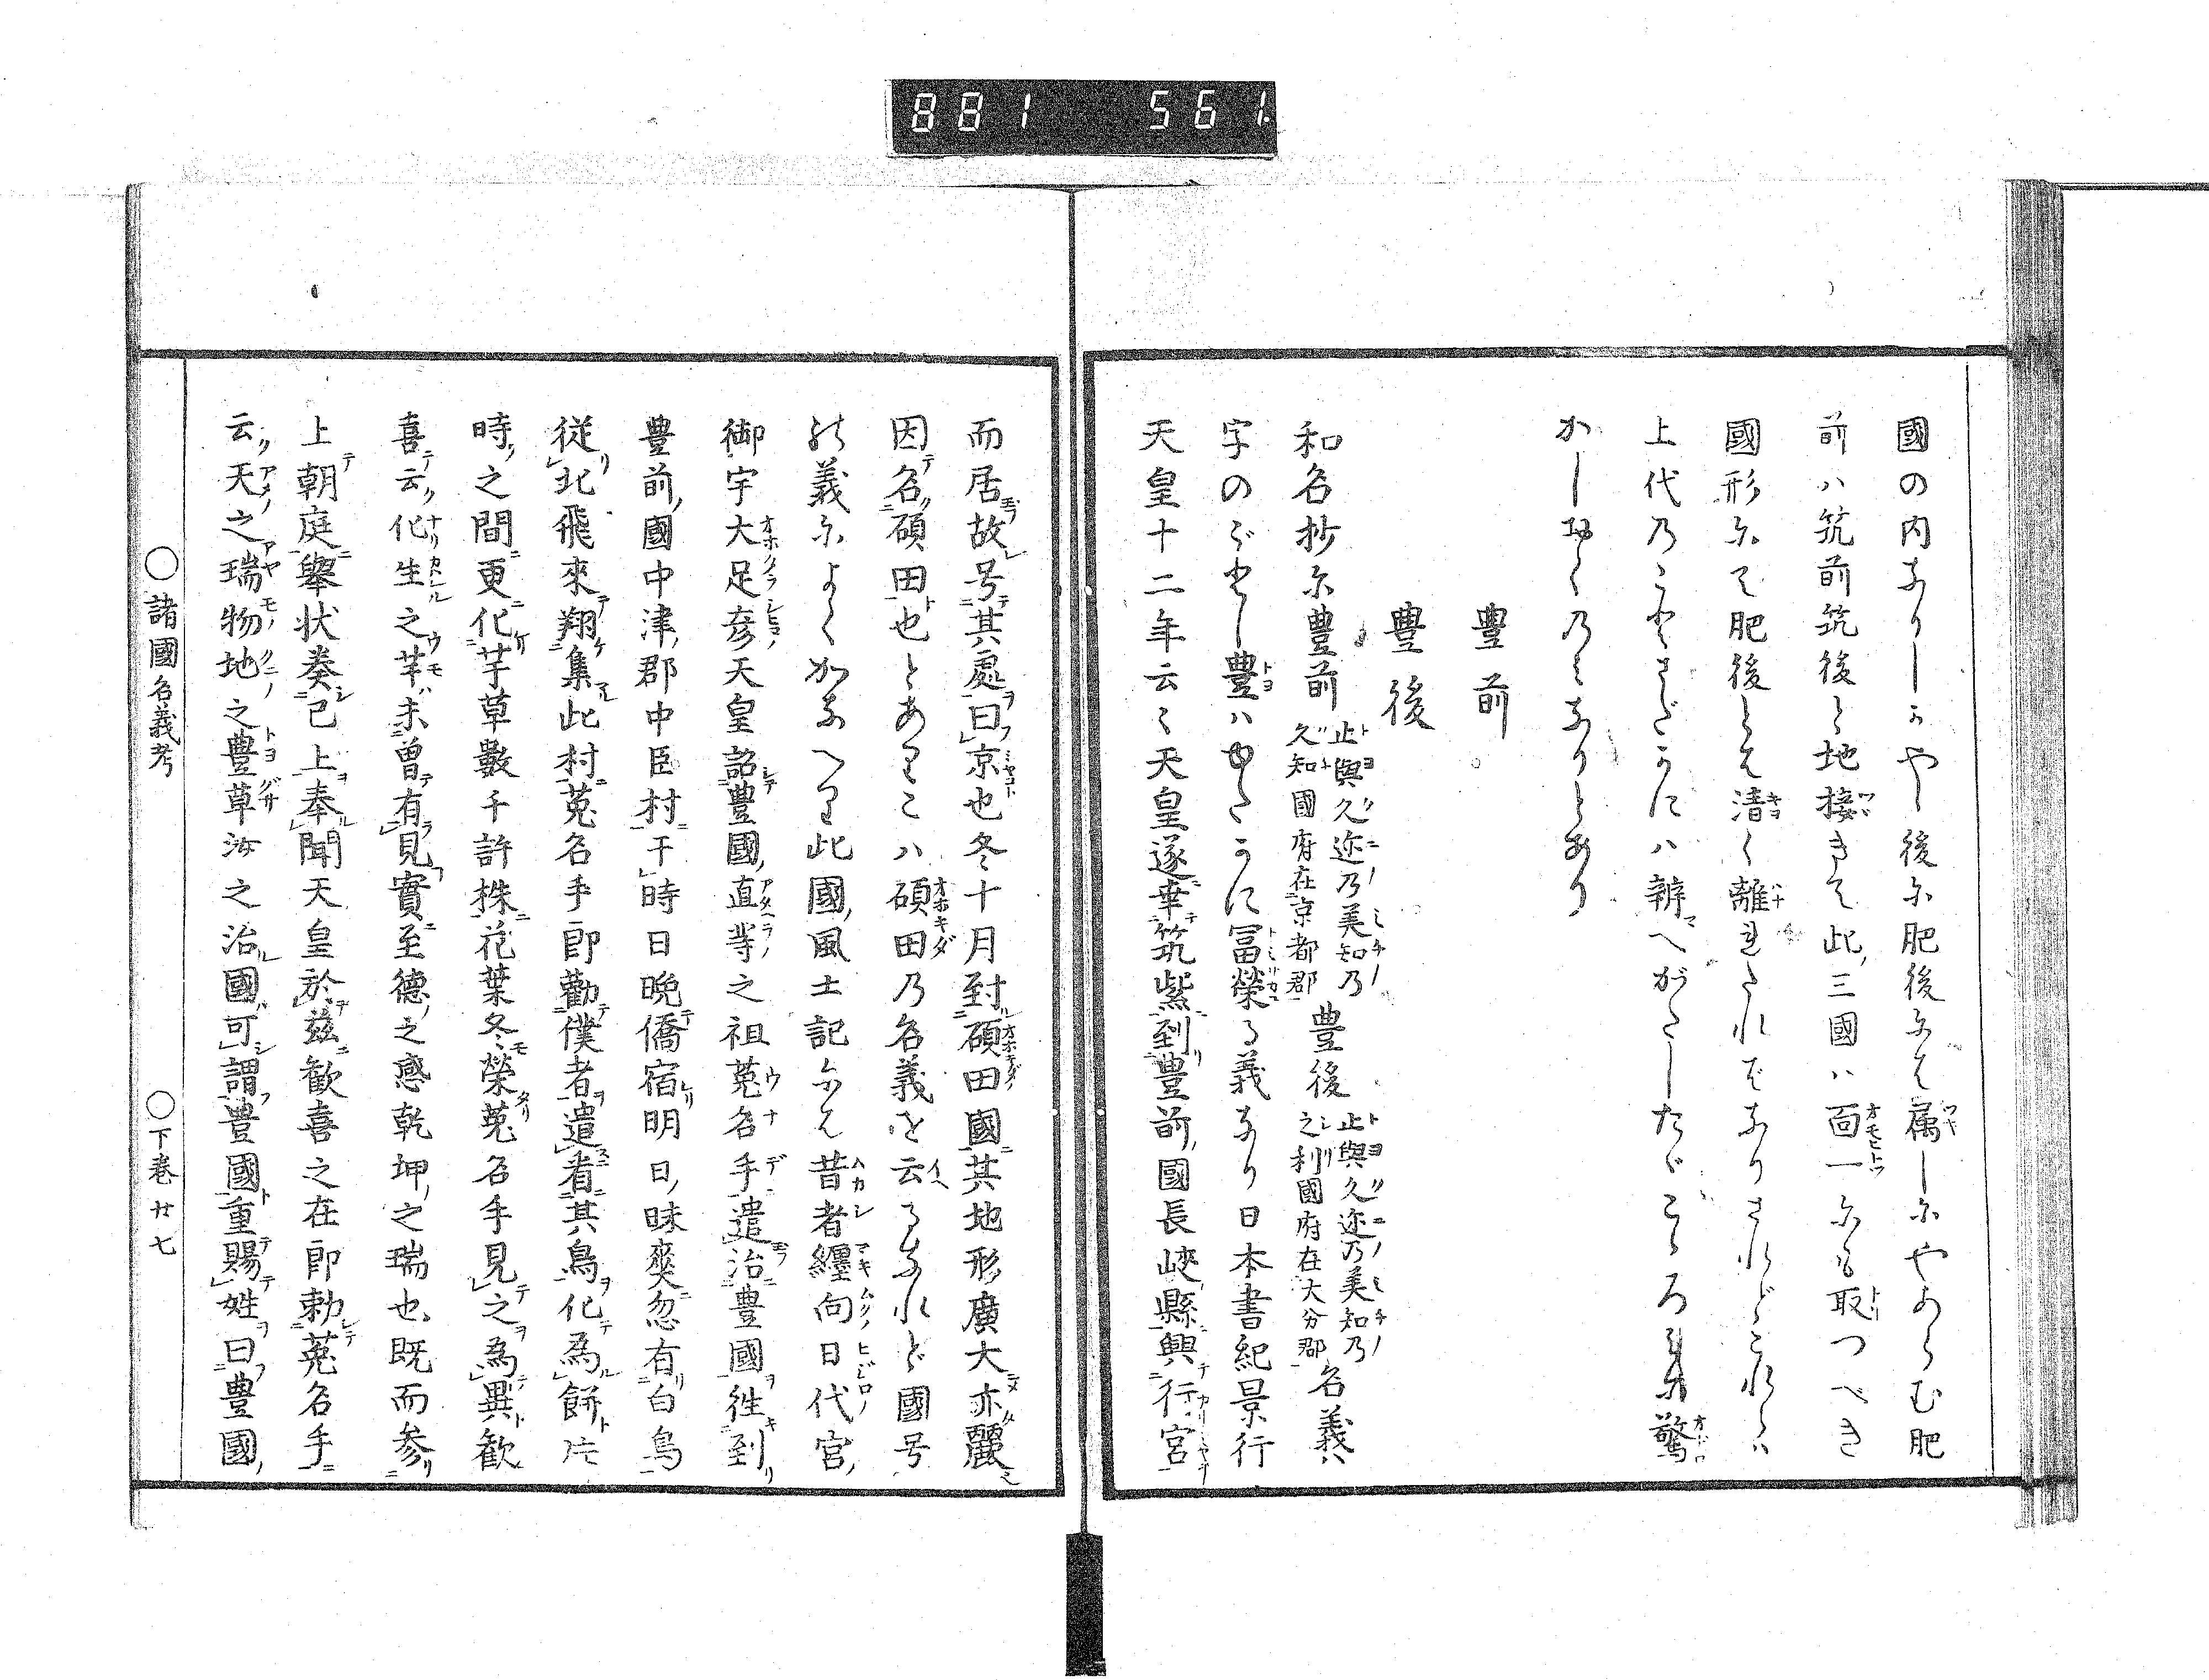 881 561
國の内なりしにや後に肥後には属しにやあらむ肥
前ハ筑前筑後と地接きて此三國ハ面一にも取つべき
國形にて肥後とは清く離れたればなりされどこれらハ
上代のことさだかにハ辨へがたしたゞこゝろみに驚
かしおくのみなりとあり
豊前
豊後
和名抄に豊前 止與久迩乃美知乃久知國府在京都郡 豊後 止與久迩乃美知乃之利國府在大分郡 名義ハ
字のごとし豊ハゆたかに冨榮る義なり日本書紀景行
天皇十二年云々天皇遂幸筑紫到豊前國長峽縣興行宮
而居故号其處曰京也冬十月到碩田國其地形廣大亦麗
因名碩田也とありこハ碩田乃名義を云るなれど國号
の義によくかなへり此國風土記には昔者纒向日代宮
御宇大足彦天皇詔豊國直等之祖菟名手遣治豊國徃到
豊前國中津郡中臣村于時日晩僑宿明日昧爽忽有白鳥
從北飛來翔集此村菟名手即勸僕者遣看其鳥化為餅片
時之間更化芋草數千許株花葉冬榮菟名手見之為異歡
喜云化生之芋未曽有見實至德之感乾坤之瑞也既而参
上朝庭擧状奏已上奉聞天皇於茲歓喜之在即勅菟名手
云天之瑞物地之豊草汝之治國可謂豊國重賜姓曰豊國
○諸國名義考 ○下巻廿七